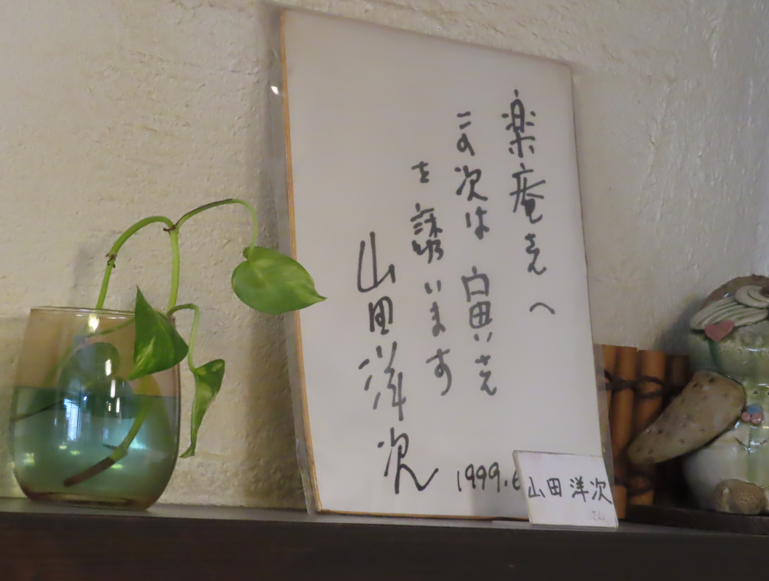 楽庵さんへ
この次は寅さん
を誘います
山田洋次
1999.6
山田洋次
さん